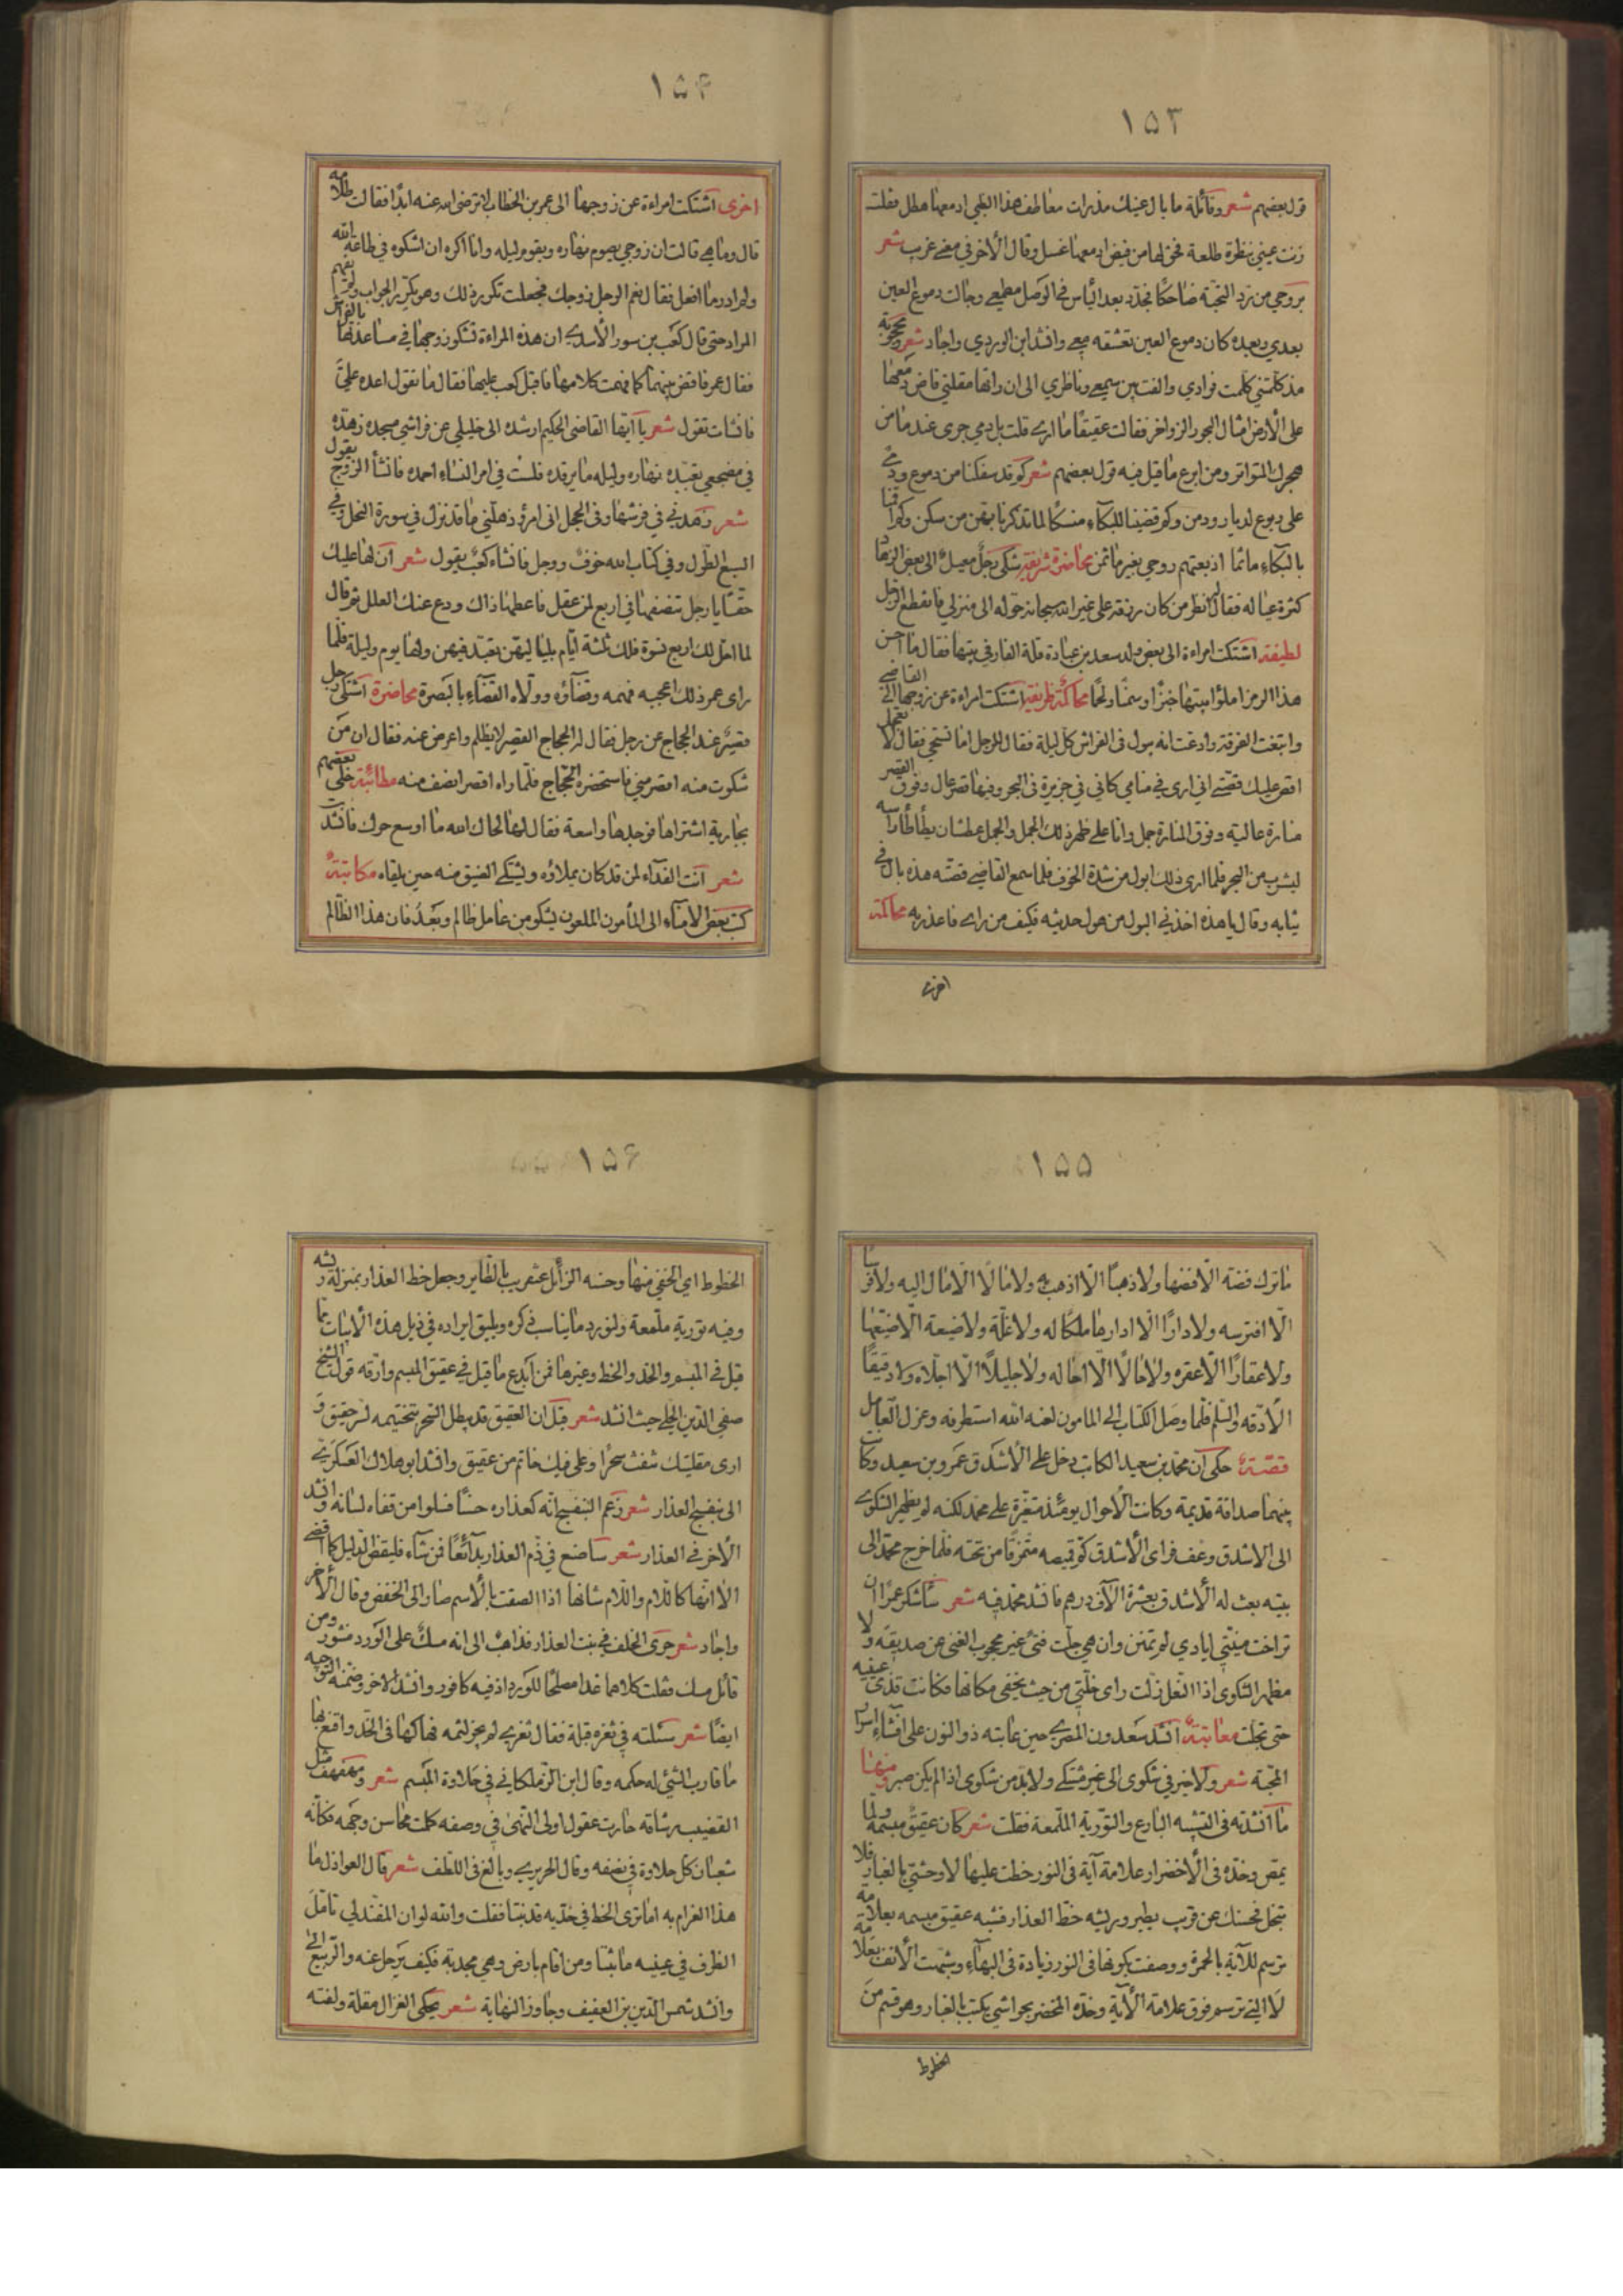 ۱۵۳
قول بعضهم شعر وقائلة ما بال عينيك مذ رات معاطف هذا الظبي ادمعها هطل فقلت
زنت عيني بنظرة طلعة فحق لها من فيض ادمعها غسل وقال الآخر في معنى غريب شعر
بروحي من زد التحية ضاحكا فجدد بعد الياس في الوصل مطمعي وحالت دموع العين
بعدي وبعده كان دموع العين تعشقه معي وانشد ابن الوردي واجاد شعر محجوبة
مذ كلمتني كلمت فوادي والفت بين سمعي وناظري الى ان راتها مقلتي فاض دمعها
على الأرض امثال البحور الزواخر فقالت عقيقا ما ارى قلت بل دمي جرى عند ما من
هجرك المتواتر ومن ابرع ما قيل فيه قول بعضهم شعر كو قد سفكنا من دموع ودمى
على ربوع لديار ودمن وكو قضينا للبكاء منسكا لما تذكرنا بهن من سكن وكو
بالبكاء ماتما اذ بعتهم روحي بغير ما ثمن محاضرة شريفة شكى رجل معيل الى بعض الزهاد
كثرة عياله فقال انظر من كان رزقه على غير الله سبحانه حوله الى منزلي فانقطع الرجل
لطيفة اشتكت امراءة الى بعض ولد سعد بن عبادة قلة الفار في بيتها فقال ما احسن
هذا الرمز املؤا بيتها خبزا وسمنا ولحما محاكمة ظريفة اشتكت امراءة عن زوجها الى القاضي
وابتغت الفرقة وادعت انه يبول في الفراش كل ليلة فقال للرجل اما تستحي فقال لا تعجل
اقص عليك قصتي اني ارى في منامي كاني في جزيرة في البحر وفيها قصر عال وفوق القصر
منارة عالية وفوق المنارة جمل وانا على ظهر ذلك الجمل والجمل عطشان يطأطأ راسه
ليشرب من البحر فلما ارى ذلك ابول من شدة الخوف فلما سمع القاضي قصته هذه بال في
ثيابه وقال يا هذه اخذني البول من هول حديثه فكيف من راى فاعذريه محاكمة
اخرى
۱۵۴
اخرى اشتكت امراءة عن زوجها الى عمر بن الخطاب لا ترضى الله عنه ابدا فقالت
قال وما هي قالت ان زوجي يصوم نهاره ويقوم ليله وانا اكره ان اشكوه في طاعة الله
ولم ادر ما افعل فقال نعم الرجل زوجك فجعلت تكرر ذلك وهو يكرر الجواب ولم يفهم
المراد حتى قال كعب بن سور الأسدى ان هذه المراءة تشكو زوجها في مباعدتها بالفراش
فقال عمر فاقض بينهما كما فهمت كلامها فاقبل كعب عليها فقال ما تقول اعده علي
فانشات تقول شعر يا ايها القاضي الحكيم ارشده الى خليلي عن فراشي مسجده زهده
في مضجعي تعبده نهاره وليله ما يرقده فلست في امر النساء احمده فانشأ الزوج يقول
شعر زهدني في فرشها وفي الحجل اني امرؤ ذهلني ما قد نزل في سورة النحل وفي
السبع الطول وفي كتاب الله خوف ووجل فانشاء كعب يقول شعر ان لها عليك
حقا يا رجل تصفها في اربع لمن عقل فاعطها ذاك ودع عنك العلل ثم قال
لما احل لك اربع نسوة فلك ثلثة ايام بلياليهن تعبد فيهن ولها يوم وليلة فلما
راى عمر ذلك اعجبه فهمه وقضاؤه وولاه القضاء بالبصرة محاضرة اشتكى رجل
قصير عند الحجاج عن رجل فقال له الحجاج القصير لا يظلم واعرض عنه فقال ان من
شكوت منه اقصر مني فاستحضره الحجاج فلما راه اقصر انصف منه مطائبة خلى بعضهم
بجارية اشتراها فوجدها واسعة فقال لها لحاك الله ما اوسع حرك فانشدت
شعر انت الفداء لمن قد كان يملاؤه ويشتكي الضيق منه حين يلقاه مكاتبة
كتب بعض الامناء الى المأمون الملعون ليشكو من عامل ظالم وبعد فان هذا الظالم
۱۵۵
ما ترك فضة الا فضها ولا ذهبا الا اذهب به ولا مالا الا مال اليه ولا فرسا
الا افترسه ولا دارا الا ادارها ملكا له ولا غلة ولا ضيعة الا ضيعها
ولا عقارا الا عقره ولا حالا الا احاله ولا جليلا الا اجلاه ولا دقيقا
الا دقه والسلم فلما وصل الكتاب الى المامون لعنه الله استطرفه وعزل العامل
قصة حكى ان محمد بن سعيد الكاتب دخل على الأشدق عمرو بن سعيد وكانت
بينهما صداقة قديمة وكانت الأحوال يومئذ متغيرة على محمد لكنه لم يظهر الشكوى
الى الاشدق وعف فراى الأشدق كو قميصه متمزقا من تحته فلما خرج محمد الى
بيته بعث له الأشدق بعشرة آلاف درهم فانشد محمد فيه شعر ساشكر عمرا ان
تراخت منيتي ايادي لم تمنن وان هي جلت فتى غير محجوب الغنى عن صديقه ولا
مظهر الشكوى اذا النعل زلت راى خلتي من حيث يخفى مكانها فكانت قذى عينيه
حتى تجلت معاتبة انشد سعدون المصري حين عاتبه ذو النون على افشاء اسرار
المحبة شعر ولا خير في شكوى الى غير مشتكى ولا بد من شكوى اذا لم يكن صبر ومنها
ما انشدته في التشبيه البارع والتورية الملمعة فقلت شعر كان عقيق مبسمه ولما
يمص وخده في الأخضرار علامة آية في النور خطت عليها لاوحشتي بالغبار فلا
تبخل فحسنك عن قريب يطير وريشه خط العذار فشبه عقيق مبسمه بعلامة
ترسم للآية بالحمرة ووصفت بكونها في النور زيادة في البهاء وشبهت الأنف بعلامة
لا التي ترسم فوق علامة الآية وخده المخضر بحواشي يكتب بالغبار وهو قسم من
الخطوط
۱۵۶
الخطوط اي الخفي منها وحسنه الزائل عنقريب بالطاير وجعل خط العذار بمنزلة ريشه
وفيه تورية ملمعة ولنورد ما يناسب ذكره ويليق ايراده في ذيل هذه الأبيات مما
قيل في المبسم والخد والخط وغيرها فمن ابدع ما قيل في عقيق المبسم وارقه قول الشيخ
صفي الدين الحلي حيث انشد شعر قيل ان العقيق قد يبطل السحر بتختيمه لسر حقيق و
ارى مقلتيك تنفث سحرا وعلى فيك خاتم من عقيق وانشد ابو هلال العسكري
الى بنفسج العذار شعر زعم البنفسج انه كعذاره حسنا فسلوا من قفاه لسانه وانشد
الآخر في العذار شعر ساصنع في ذم العذار بدائعا فمن شاء فليقض الدليل كما اقضي
الا انها كاللام واللام شانها اذا الصقت بالأسم صار الى الخفض وقال الآخر
واجاد شعر جرى الخلف في نبت العذار فذاهب الى انه مسك على الورد منثور ومن
قائل مسك فقلت كلاهما غدا مصلحا للورد اذ فيه كافور وانشد الاخر وضمنه التوجيه
ايضا شعر سئلته في ثغره قبلة فقال ثغري لم يجز لثمه فهاكها في الخد واقنع بها
ما قارب الشئ له حكمه وقال ابن الزملكاني في حلاوة المبسم شعر ومهفهف مثل
القضيب رشاقة حارت عقول اولى النهى في وصفه كملت محاسن وجهه فكانه
شعبان كل حلاوة في نصفه وقال الحريري وبالغ في اللطف شعر قال العواذل ما
هذا الغرام به اما ترى الخط في خديه قد نبتا فقلت والله لو ان المفند لي تامل
الطرف في عينيه ما ثبتا ومن اقام بارض وهي مجدبة فكيف يرحل عنه والربيع اتى
وانشد شمس الدين بن العفيف وجاوز النهاية شعر يحكي الغزال مقلة ولفته